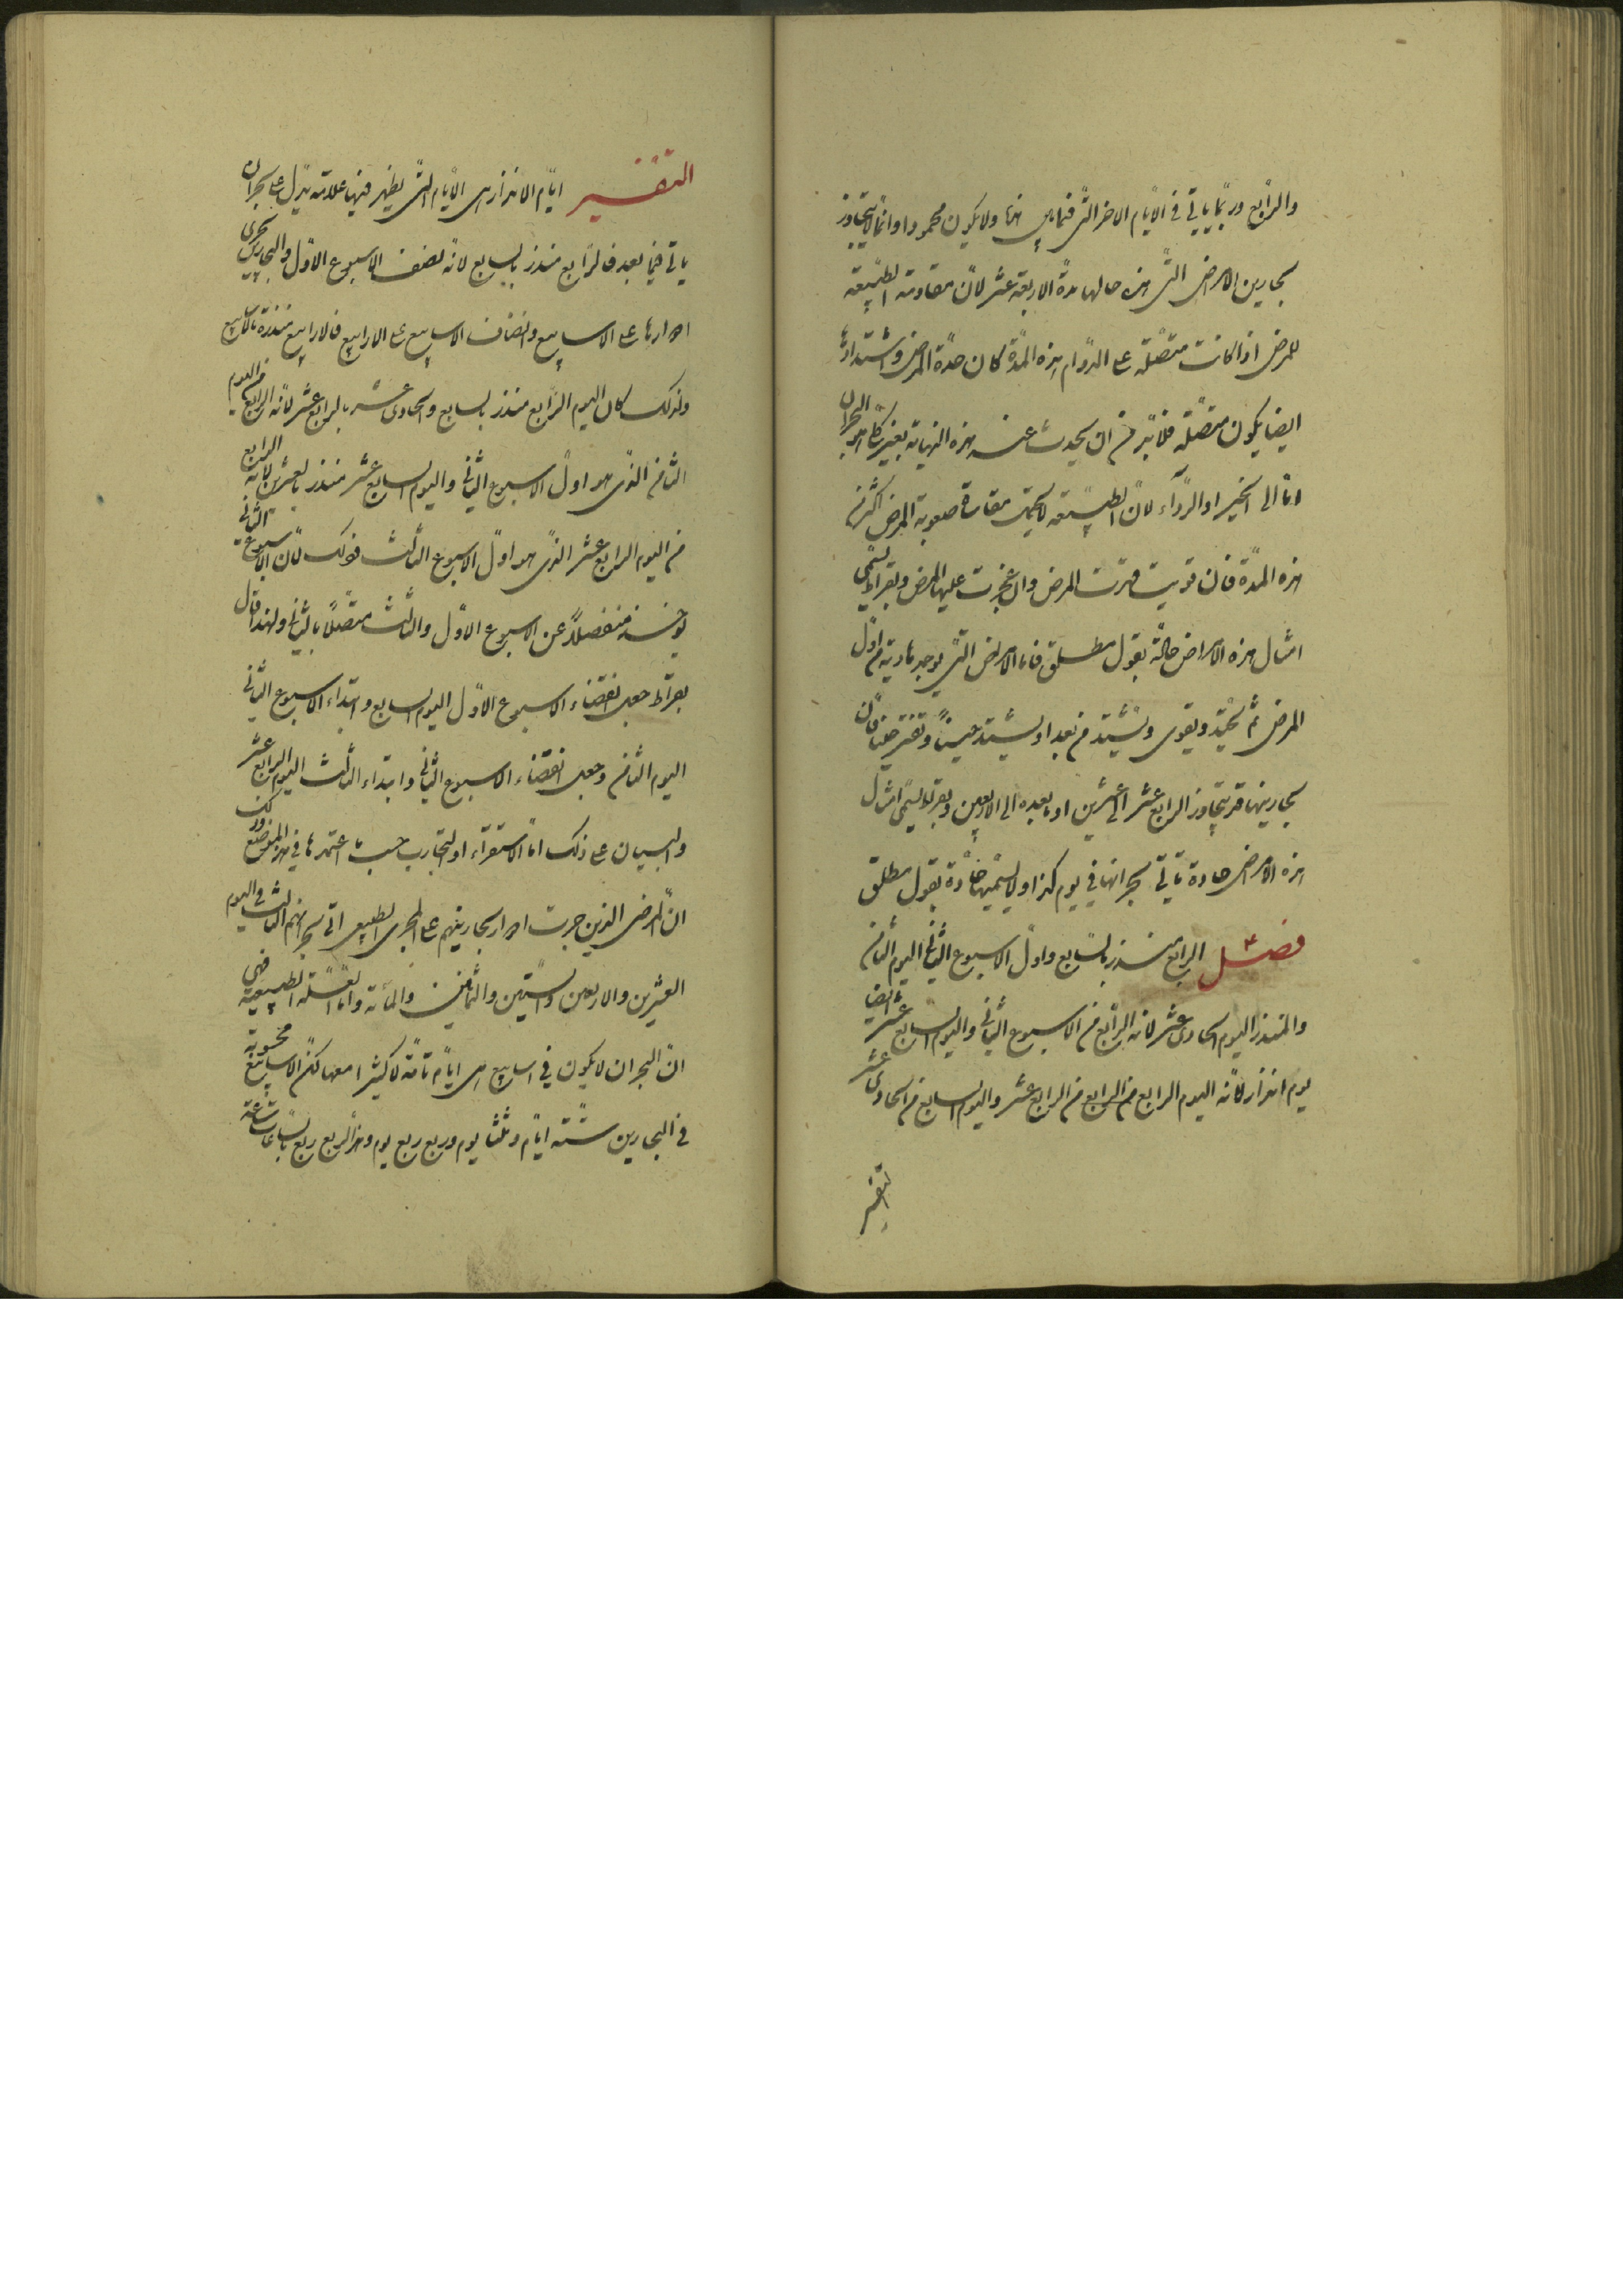 والرابع وربما يأتي في الأيام الاخر التي فيما بينهما ولا يكون محمودا وانما لا يتجاوز
بحارين الامراض التي هذه حالها مدة الاربعة عشر لان مقاومة الطبيعة
للمرض اذا كانت متصلة على الدوام هذه المدة كان حدة المرض واشتداده
ايضا يكون متصلة فلا بد من ان يحدث عند هذه النهاية تغير كامل هو البحران
اما الى الخير او الرداء لان الطبيعة لا تحتمل مقاساة صعوبة المرض اكثر من
هذه المدة فان قويت قهرت المرض وان عجزت عليها المرض وبقراط يسمي
امثال هذه الامراض حادة بقول مطلق فاما الامراض التي يوجد هادية من اول
المرض ثم تحتد ويقوى وتشتد من بعد او يشتد حينا وتفتر حينا فان
بحارينها قد يتجاوز الرابع عشر الى العشرين او ما بعده الى الاربعين وبقراط يسمي امثال
هذه الامراض حادة يأتي بحرانها في يوم كذا ولا يسميها حادة بقول مطلق
فصل الرابع منذر بالسابع واول الاسبوع الثاني اليوم الثامن
والمنذر اليوم الحادي عشر لانه الرابع من الاسبوع الثاني واليوم السابع عشر ايضا
يوم انذار لانه اليوم الرابع من الرابع من الرابع عشر واليوم السابع من الحادي عشر
التفسير
التفسير ايام الانذار هي الايام التي يظهر فيها علامة تدل على بحران
يأتي فيما بعد فالرابع منذر بالسابع لانه نصف الاسبوع الاول والبحارين تجري
ادوارها على الاسابيع وانصاف الاسابيع على الارابيع فالارابيع منذرة بالاسابيع
ولذلك كان اليوم الرابع منذر بالسابع والحادي عشر بالرابع عشر لانه الرابع من اليوم
الثامن الذي هو اول الاسبوع الثاني واليوم السابع عشر منذر بالعشرين لانه الرابع
من اليوم الرابع عشر الذي هو اول الاسبوع الثالث فذلك لان الاسبوع الثاني
يؤخذ منفصلا عن الاسبوع الاول والثالث متصلا بالثاني ولهذا قال
بقراط جعل انقضاء الاسبوع الاول اليوم السابع وابتداء الاسبوع الثاني
اليوم الثامن وجعل انقضاء الاسبوع الثاني وابتداء الثالث اليوم الرابع عشر
والبيان على ذلك اما الاستقراء او التجارب حسب ما اعتمدها في هذا الموضع وذلك
ان المرضى الذين جرت ادوار بحارينهم على المجرى الطبيعي اتى بحرانهم الثالث في اليوم
العشرين والاربعين والستين والثمانين والمائة واما العلة الطبيعية فهي
ان البحران لا يكون في اسابيع هي ايام تامة لا كثيرا معها لكن الاسابيع محسوبة
في البحارين ستة ايام وثلثا يوم وربع ربع يوم وهذا الربع ربع بالساعات ساعة